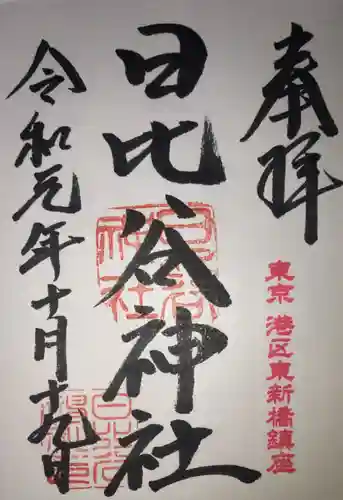 奉拝
東京 港区東新橋鎮座
日比谷神社
令和元年十月十九日